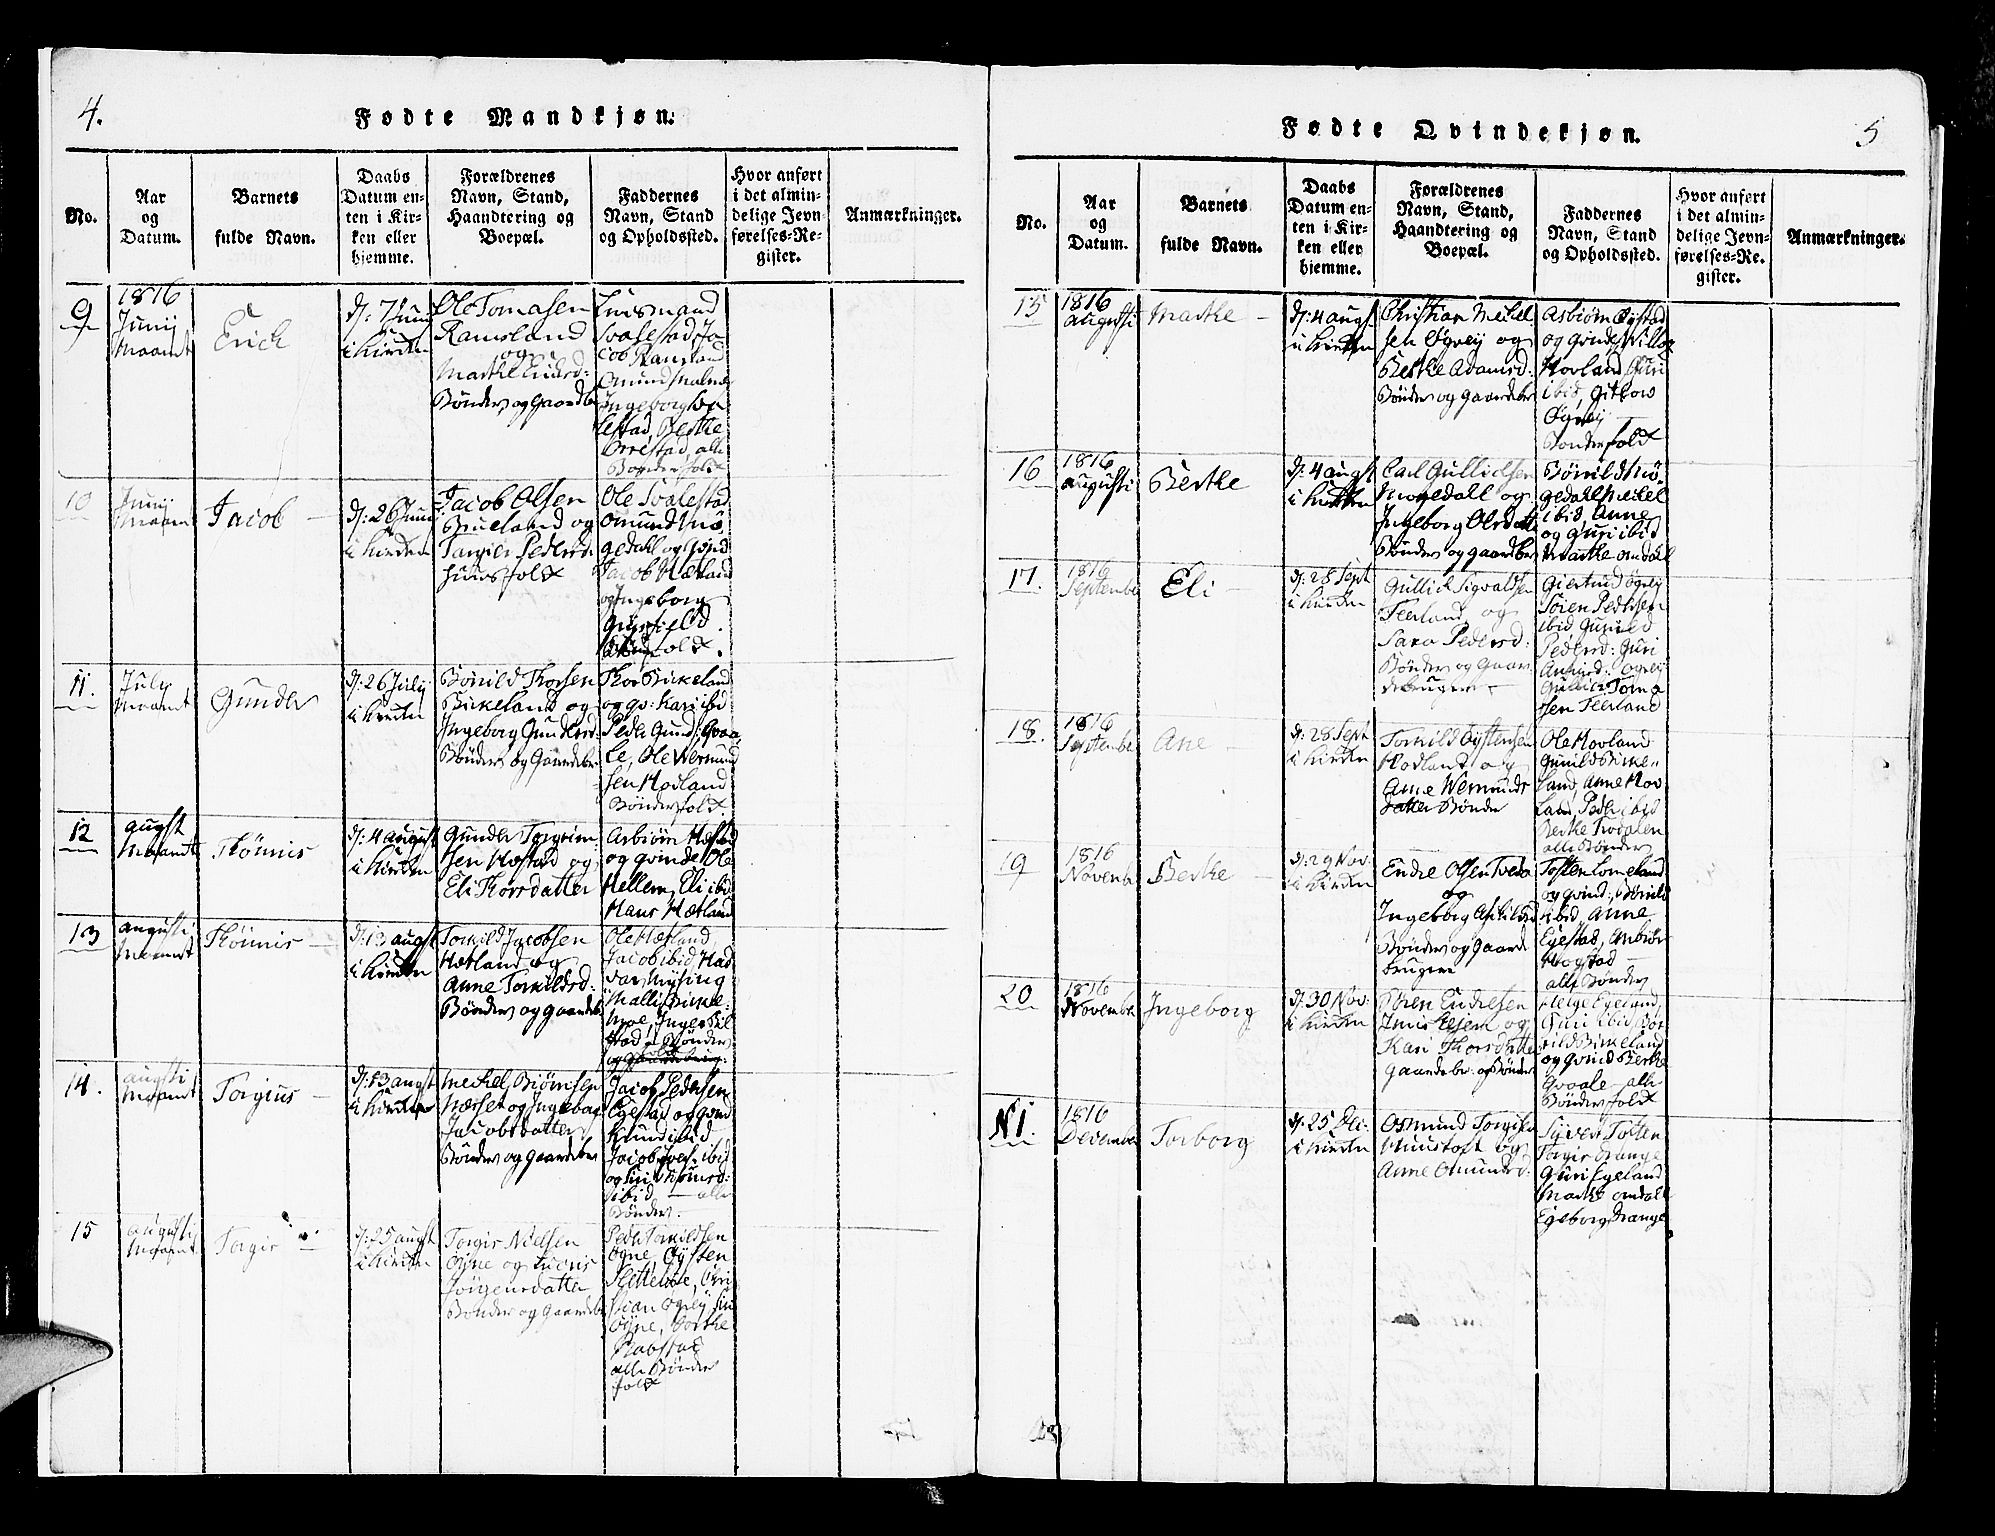 4.
Fødte Mandkjøn.
No.
Aar
og
Datum.
Barnets
fulde Navn.
Daabs
Datum en-
ten i Kir-
ken eller
hjemme.
Forældrenes
Navn, Stand,
Haandtering og
Boepæl.
Faddernes
Navn, Stand
og Opholdssted.
Hvor anført
i det almin-
delige Jevn-
førelses-Re-
gister.
Anmærkninger.
9
1816
Junij
Maamt
Erich
d: 7 Juni
i kirken
Ole Tomasen
Ramsland
og
Marthe
Bønder og Gaardbr
Svalestad, Ja-
cob Ramsland
Omund
Ingeborg Sva
lestad, Berthe
Orrestad, alle
Bønderfolk
10
Junij
Maamt
Jacob
d: 26 Juni
i kirken
Jacob Olsen
Brueland og
Pedersd:
Huusfolk
Ole Svalestad
Omund Mø
gedahl og
Jacob Hætland
og Ingeborg
11.
July
Maamt
Gunder
d: 26 July
i kirken
Bønild Thorsen
Birkeland og
Ingeborg Gundersd:
Bønder og Gaardebr.
Thor Birkeland
og qv: Kari ibid
Peder Gund: Qvaa
le, Ole Wermund
sen Hodland
Bønderfolk
12
augst
Maamt
Thønnis
d: 4 august
i kirken
Gunder Torgrim
sen Hæstad og
Eli Thorsdatter
Asbiørn Hæstad
og qvinde Ole
Hellem, Eli ibid
Hans Hætland
13
augusti
Maamt
Thønnis
d: 13 augst
i kirken
Tormild Jacobsen
Hætland og
Anne Tormildsd:
Bønder og gaardebr
Ole Hætland,
Jacob ibid Had
var Mysing
Malli Birke-
moe, Inger Bil
stad, Bønder
14.
augsti
Maamt
Torgius
d: 13 augst
i kirken
Meckel Biørnsen
Nærset og Ingeborg
Jacobsdatter
Bønder og gaardebr
Jacob Pedersen
Egestad og qvind
ibid
Jacob Iver ibid
og Siri
ibid — alle
Bønder
15
augusti
Maamt
Torgir
d: 25 augst
i kirken
Torgir Nielsen
Øgne og
Jørgensdatter
Bønder og Gaardebr
Peder Tormildsen
Øgne, Øysten
Sletteberg, Chri
stian Øgrey
Øgne, Dorthe
alle Bønder
folk
5
Fødte Qvindekjøn.
No.
Aar
og
Datum.
Barnets
fulde Navn.
Daabs
Datum en-
ten i Kir-
ken eller
hjemme.
Forældrenes
Navn, Stand,
Haandtering og
Boepæl.
Faddernes
Navn, Stand
og Opholdssted.
Hvor anført
i det almin-
delige Jevn-
førelses-Re-
gister.
Anmærkninger.
15
1816
Augusti
Marthe
d: 4 augst
i kirken
Christian Meckel
sen Øgrey og
Berthe Adamsd:
Bønder og gaardebr
Asbiørn Øystad
og qvinde,
Hovland, Guri
ibid,
Øgrey
Bonderfolk
16
1816
augusti
Berthe
d: 4 augst
i kirken
Carl Gullichsen
Møgedall og
Ingeborg Olsdatter
Bønder og gaardebr
Bønild Mø-
gedahl Mekel
ibid, Anne
og Guri ibid
Marthe Omdahl
17.
1816
Septembr
Eli
d: 28 Sept
i kirken
Gullich Sigvaldsen
Feerland og
Sara Pedersd:
Bønder og Gaar
debruger
Giertrud Øgrey
Søren Pedersen
ibid Gunild
Pedersd: Guri
Øgrey
Gulich Toma
sen Feerland
18.
1816
Septembr
Ane
d: 28 Sept
i kirken
Tormild Øystensen
Hodland og
Anne Wermunds
datter Bønder
Ole Hovland
Gunild Birke-
land, Anne Hov
land, Peder ibid
Berthe Trodalen
alle Bønder
19
1816
Novembr
Berthe
d: 29 Nov:
i kirken
Endre Olsen Tveda
og
Ingeborg
Bønder og gaard
brugere
Tosten Lomeland
og qvind:, Bønild
ibid, Anne
Egestad, Anbiør
Hogstad —
alle Bønder
20
1816
Novembr
Ingeborg
d: 30 Nov:
i kirken
Søren Endresen
og
Kari Thorsdatter
gaardebr: og Bønder
Helge Egeland,
Guri ibid,
Birkeland
og qvind Berthe
Qvaale — alle
Bønderfolk
N 1.
1816
December
Torborg
d: 25 De:
i kirken
Osmund Torgis
og
Anne Omundsd:
Syvert Totten
Torgir Drange
Guri Egeland
Marthe Omdahl
Egeborg Drange